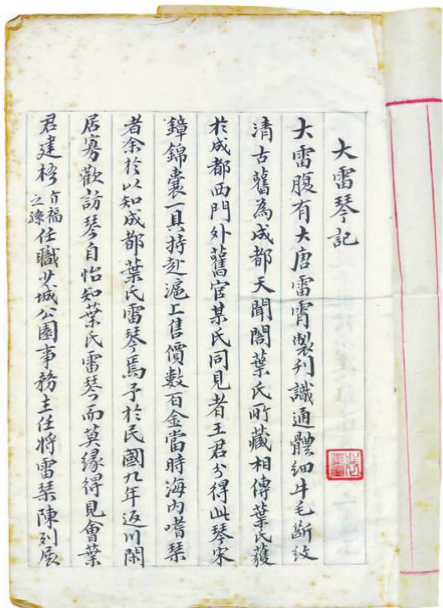 大雷琴記
大雷腹有大唐雷霄製列識通體細牛毛斷紋
清古舊為成都天聞閣葉氏所藏相傳葉氏獲
於成都西門外舊官某氏同見者王君分得此琴宋
鐘錦囊一具持赴滬上售價數百金當時海內嗜琴
者余於以知成都葉氏雷琴焉予於民國九年返川閑
居寡歡訪琴自怡知葉氏雷琴而莫緣得見會葉
君建樗介福之孫任職少城公園事務主任將雷琴陳列展